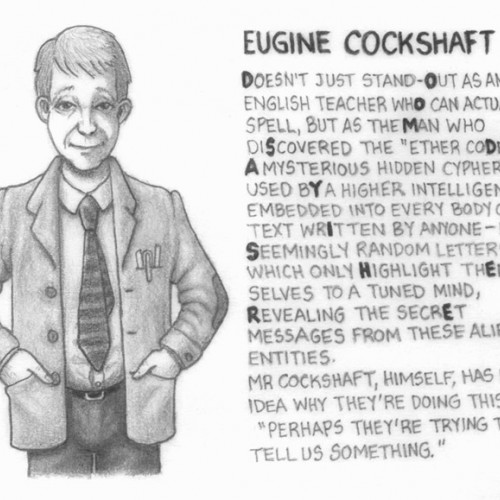 EUGINE COCKSHAFT
DOESN'T JUST STAND-OUT AS AN
ENGLISH TEACHER WHO CAN ACTU
SPELL, BUT AS THE MAN WHO
DISCOVERED THE "ETHER COD
A MYSTERIOUS HIDDEN CYPHER
USED BY A HIGHER INTELLIGEN
EMBEDDED INTO EVERY BODY O
TEXT WRITTEN BY ANYONE–
SEEMINGLY RANDOM LETTER
WHICH ONLY HIGHLIGHT THE
SELVES TO A TUNED MIND,
REVEALING THE SECRET
MESSAGES FROM THESE ALIE
ENTITIES.
MR COCKSHAFT, HIMSELF, HAS
IDEA WHY THEY'RE DOING THIS
"PERHAPS THEY'RE TRYING T
TELL US SOMETHING."